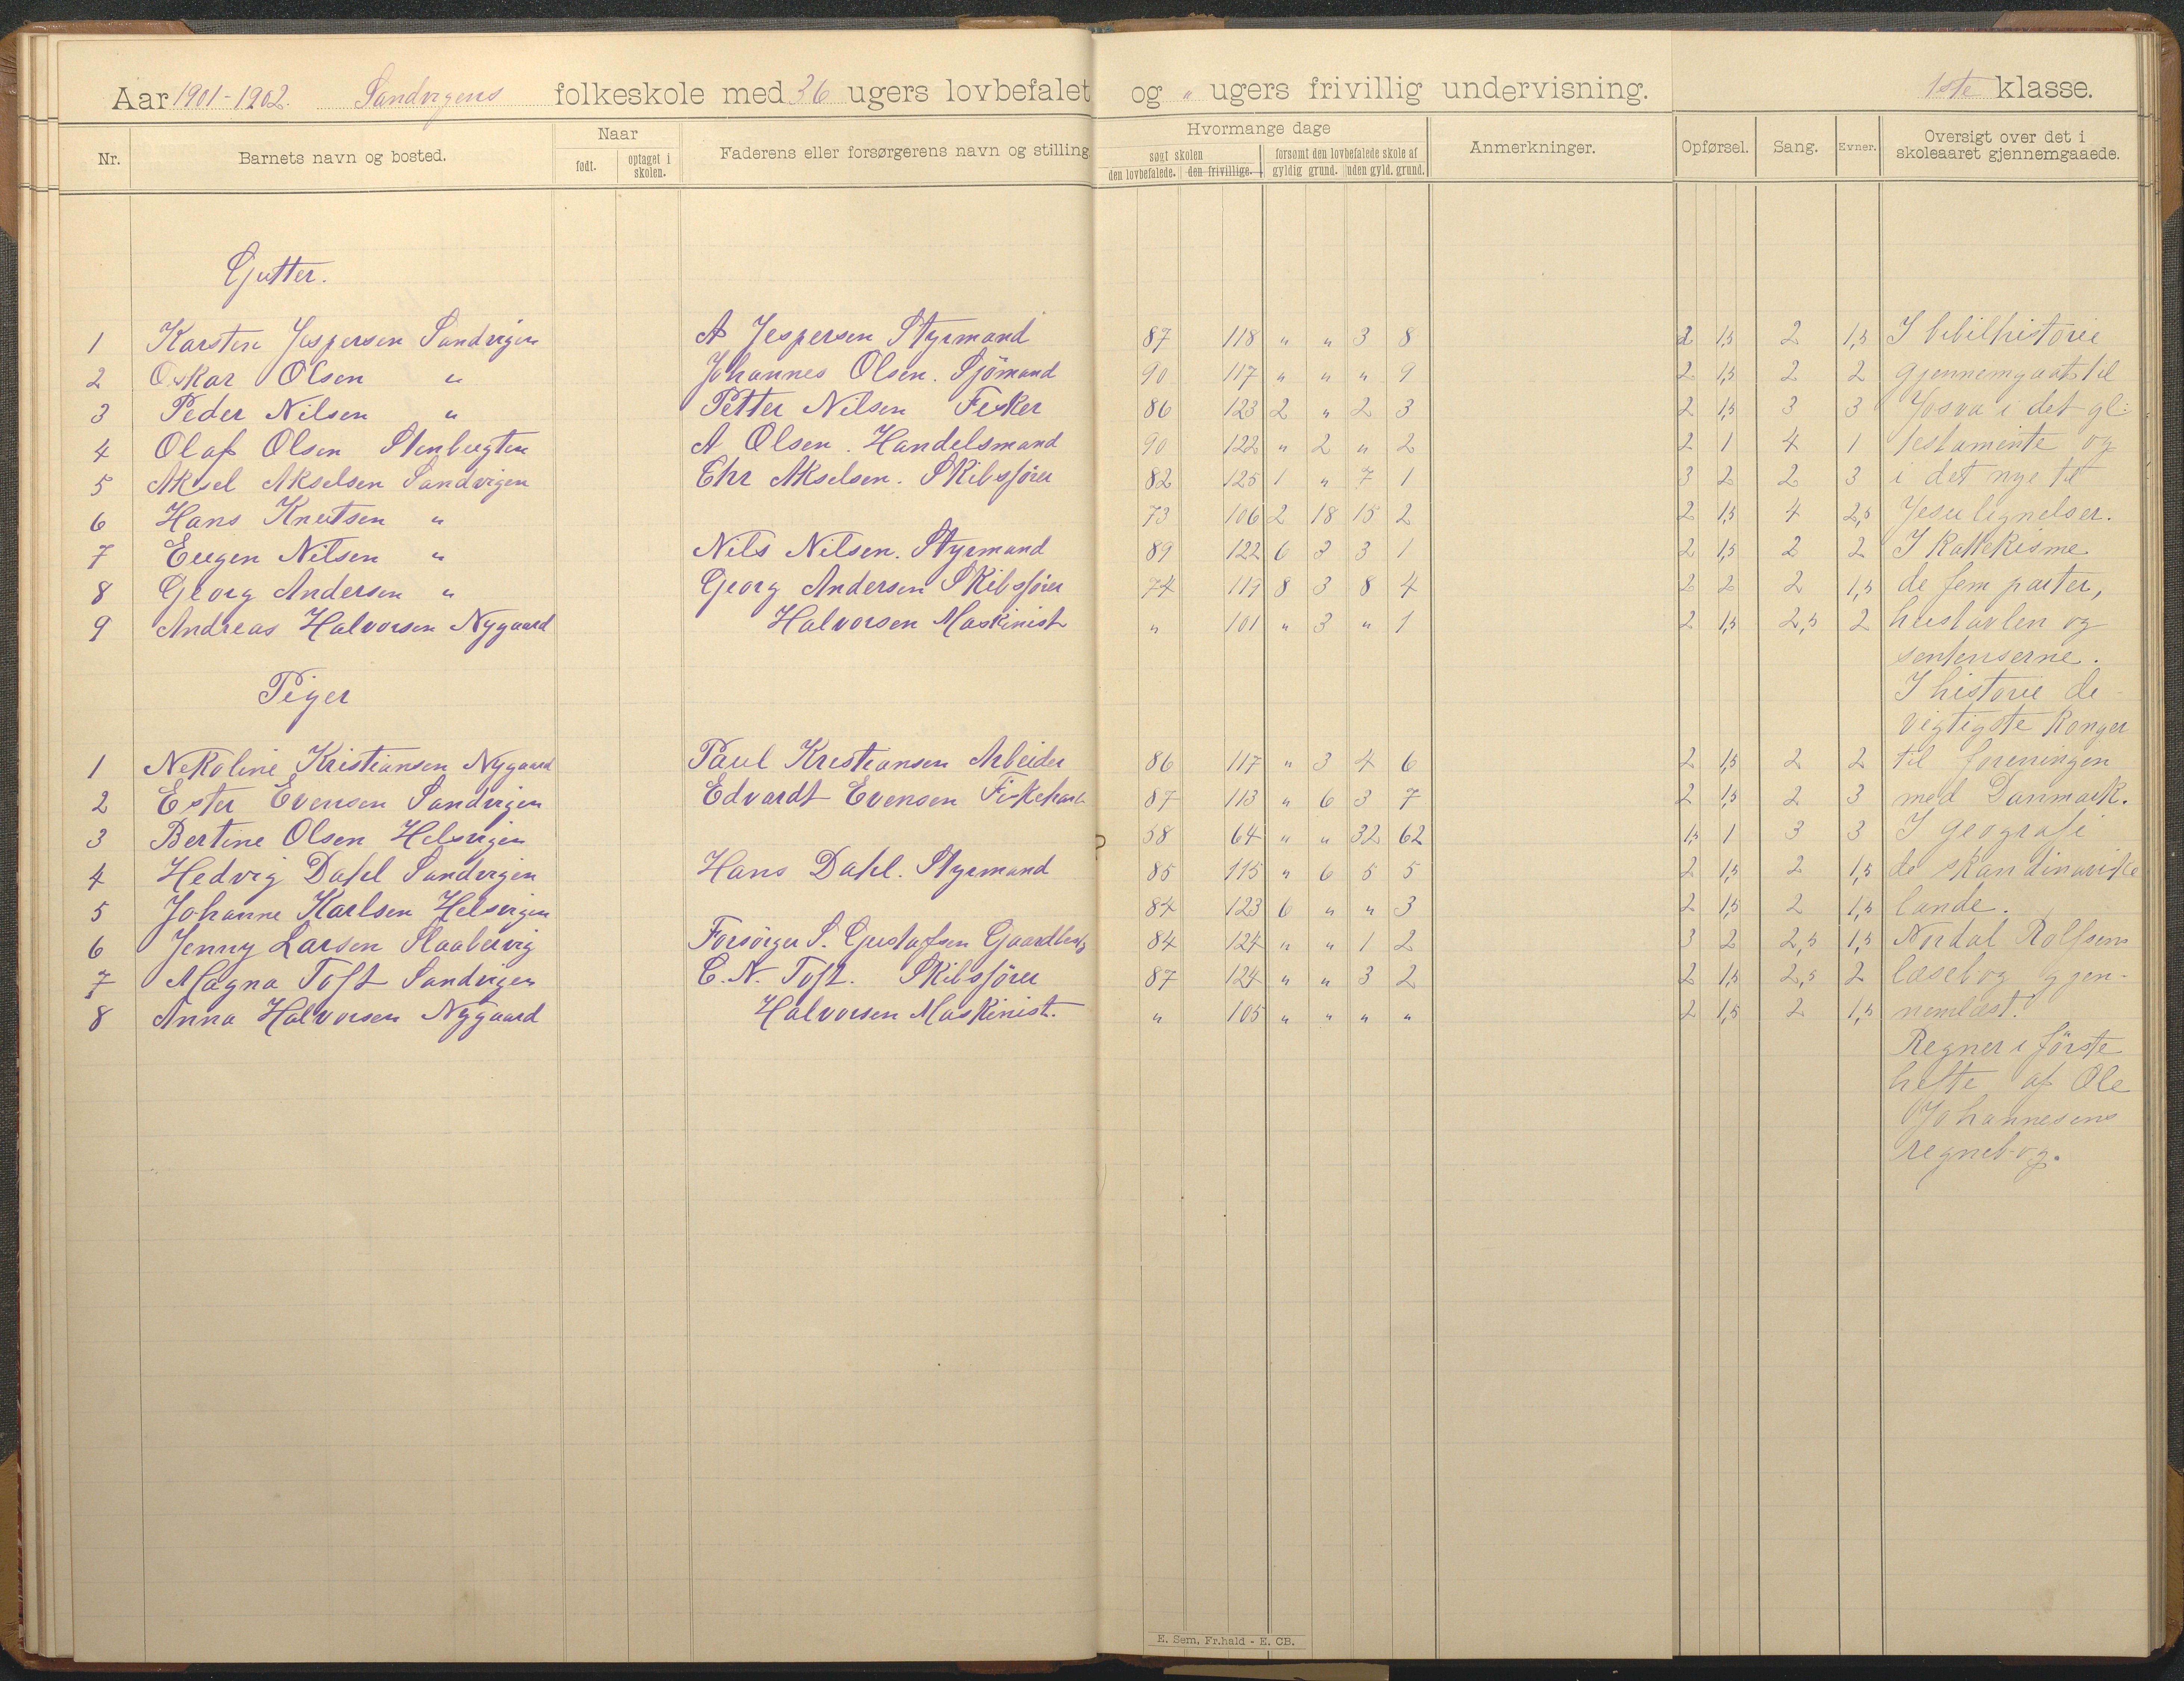 Aar 1901-1902. Sandvigens folkeskole med 36 ugers lovbefalet og " ugers frivillig undervisning. 1ste klasse.
Nr. Barnets navn og bosted. Naar født. optaget i skolen. Faderens eller forsørgerens navn og stilling Hvormange dage søgt skolen den lovbefalede. den frivillige. forsømt den lovbefalede skole af gyldig grund. uden gyld. grund. Anmerkninger. Opførsel. Sang. Evner. Oversigt over det i skoleaaret gjennemgaaede.
Gutter.
1 Karsten Jespersen Sandvigen A Jespersen Styrmand 87 118 " " 3 8 2 1,5 2 1,5 I bibilhistorie
2 Oskar Olsen " Johannes Olsen. Sjömand 90 117 " " " 9 2 1,5 2 2 gjennemgaat til
3 Peder Nilsen " Petter Nilsen Fisker 86 123 2 " 2 3 2 1,5 3 3 Josva i det gl:
4 Olaf Olsen Stenbrygten A Olsen. Handelsmand 90 122 " 2 " 2 2 1 4 1 testamente og
5 Aksel Akselsen Sandvigen Chr Akselsen. Skibsfører 82 125 1 " 7 1 3 2 2 3 i det nye til
6 Hans Knutsen " 73 106 2 18 15 2 2 1,5 4 2,5 Jesu lignelser.
7 Eugen Nilsen " Nils Nilsen. Styrmand 89 122 6 3 3 1 2 1,5 2 2 I Kattekisme
8 Georg Andersen " Georg Andersen Skibsfører 74 119 8 3 8 4 2 2 2 1,5 de fem parter,
9 Andreas Halvorsen Nygaard Halvorsen Maskinist " 101 " 3 " 1 2 1,5 2,5 2 hustavlen og
sentenserne.
Piger I historie de
vigtigste Konger
1 Nekoline Kristiansen Nygaard Paul Kristiansen Arbeider 86 117 " 3 4 6 2 1,5 2 2 til foreningen
2 Ester Evensen Sandvigen Edvardt Evensen 87 113 " 6 3 7 2 1,5 2 3 med Danmark.
3 Bertine Olsen Helsvigen 58 64 " " 32 62 1,5 1 3 3 I geografi
4 Hedvig Dahl Sandvigen Hans Dahl. Styrmand 85 115 " 6 5 5 2 1,5 2 1,5 de skandinaviske
5 Johanne Karlsen Helsvigen 84 123 6 " " 3 2 1,5 2 1,5 lande.
6 Jenny Larsen Slaabervig Forsörger S. Gustafsen 84 124 " " 1 2 3 2 2,5 1,5 Nordal Rolfsens
7 Magna Toft Sandvigen C. N. Toft. Skibsfører 87 124 " " 3 2 2 1,5 2,5 2 læsebog gjen-
8 Anna Halvorsen Nygaard Halvorsen Maskinist. " 105 " " " " 2 1,5 2 1,5 nemlæst.
Regner i förste
hefte af Ole
Johannesens
regnebog.
E. Sem, Fr.hald - E. CB.